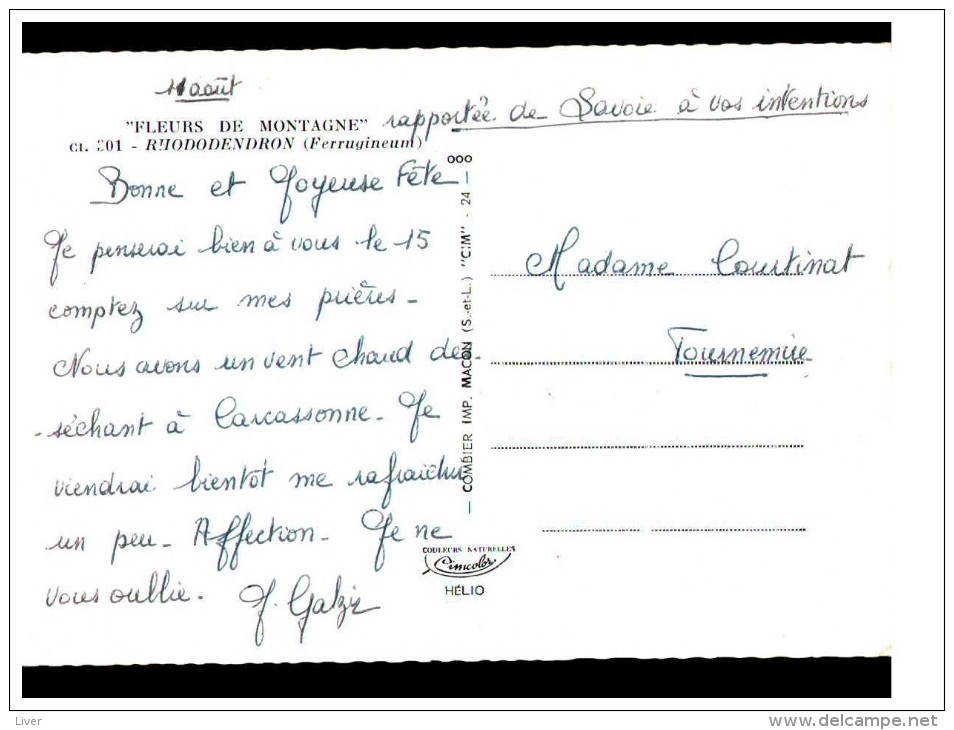 11 août
"FLEURS DE MONTAGNE"
rapportée de Savoie à vos intentions
Cl. 301 - RHODODENDRON (Ferrugineum)
Bonne et Joyeuse Fête
Je penserai bien à vous le 15
comptez sur mes prières -
Nous avons un vent chaud des-
- séchant à Carcassonne - Je
viendrai bientôt me rafraichir
un peu - Affection - Je ne
vous oublie.
J. Galzy
000
— COMBIER IMP. MACON (S.-et-L.) "CIM" - 24 —
COULEURS NATURELLES
Cimcolor
HÉLIO
Madame Courtinat
Tournemire
Liver
www.delcampe.net